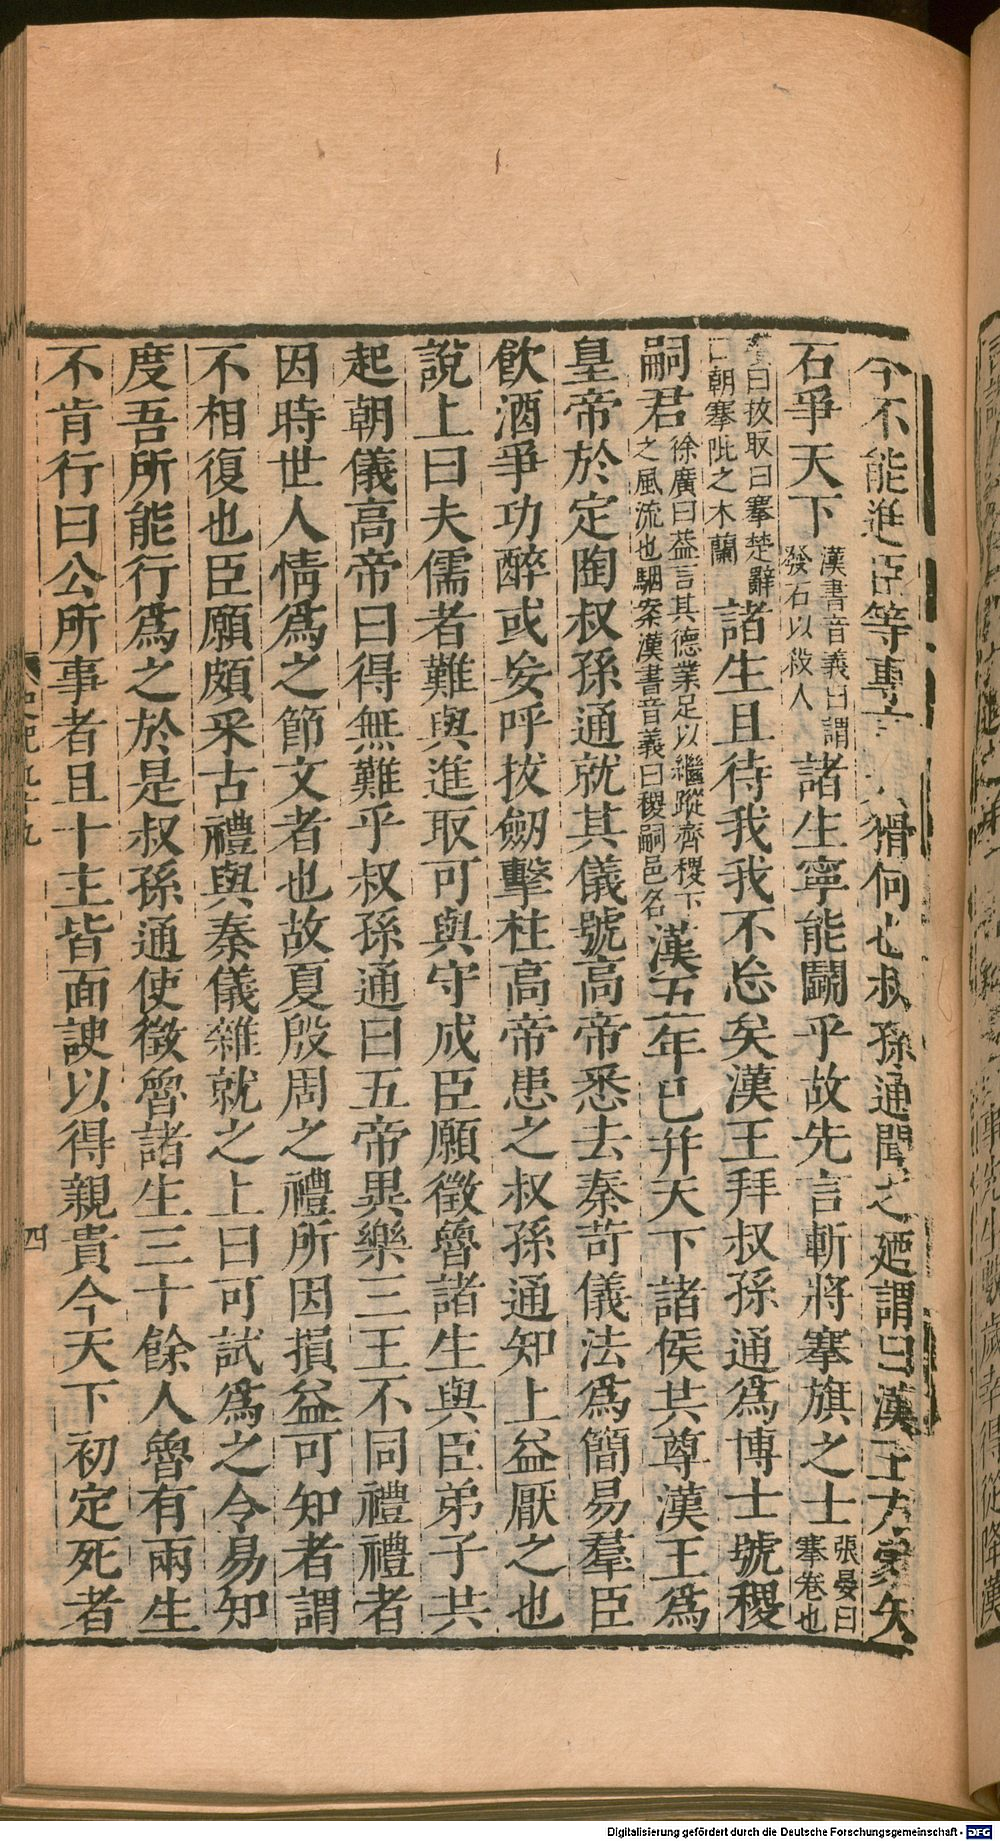 今不能進臣等專言 猾何也叔孫通聞之廼謂曰漢王方蒙矢
石爭天下漢書音義曰謂發石以投人諸生寧能鬭乎故先言斬將搴旗之士張晏曰搴卷也
瓚曰拔取曰搴楚辭曰朝搴阰之木蘭諸生且待我我不忘矣漢王拜叔孫通爲博士號稷
嗣君徐廣曰葢言其德業足以繼蹤齊稷下之風流也駰案漢書音義曰稷嗣邑名漢五年已并天下諸侯共尊漢王爲
皇帝於定陶叔孫通就其儀號高帝悉去秦苛儀法爲簡易羣臣
飲酒爭功醉或妄呼拔劒擊柱高帝患之叔孫通知上益厭之也
說上曰夫儒者難與進取可與守成臣願徵魯諸生與臣弟子共
起朝儀高帝曰得無難乎叔孫通曰五帝異樂三王不同禮禮者
因時世人情爲之節文者也故夏殷周之禮所因損益可知者謂
不相復也臣願頗采古禮與秦儀雜就之上曰可試爲之令易知
度吾所能行爲之於是叔孫通使徵魯諸生三十餘人魯有兩生
不肯行曰公所事者且十主皆面諛以得親貴今天下初定死者
史記九十九
四
Digitalisierung gefördert durch die Deutsche Forschungsgemeinschaft - DFG